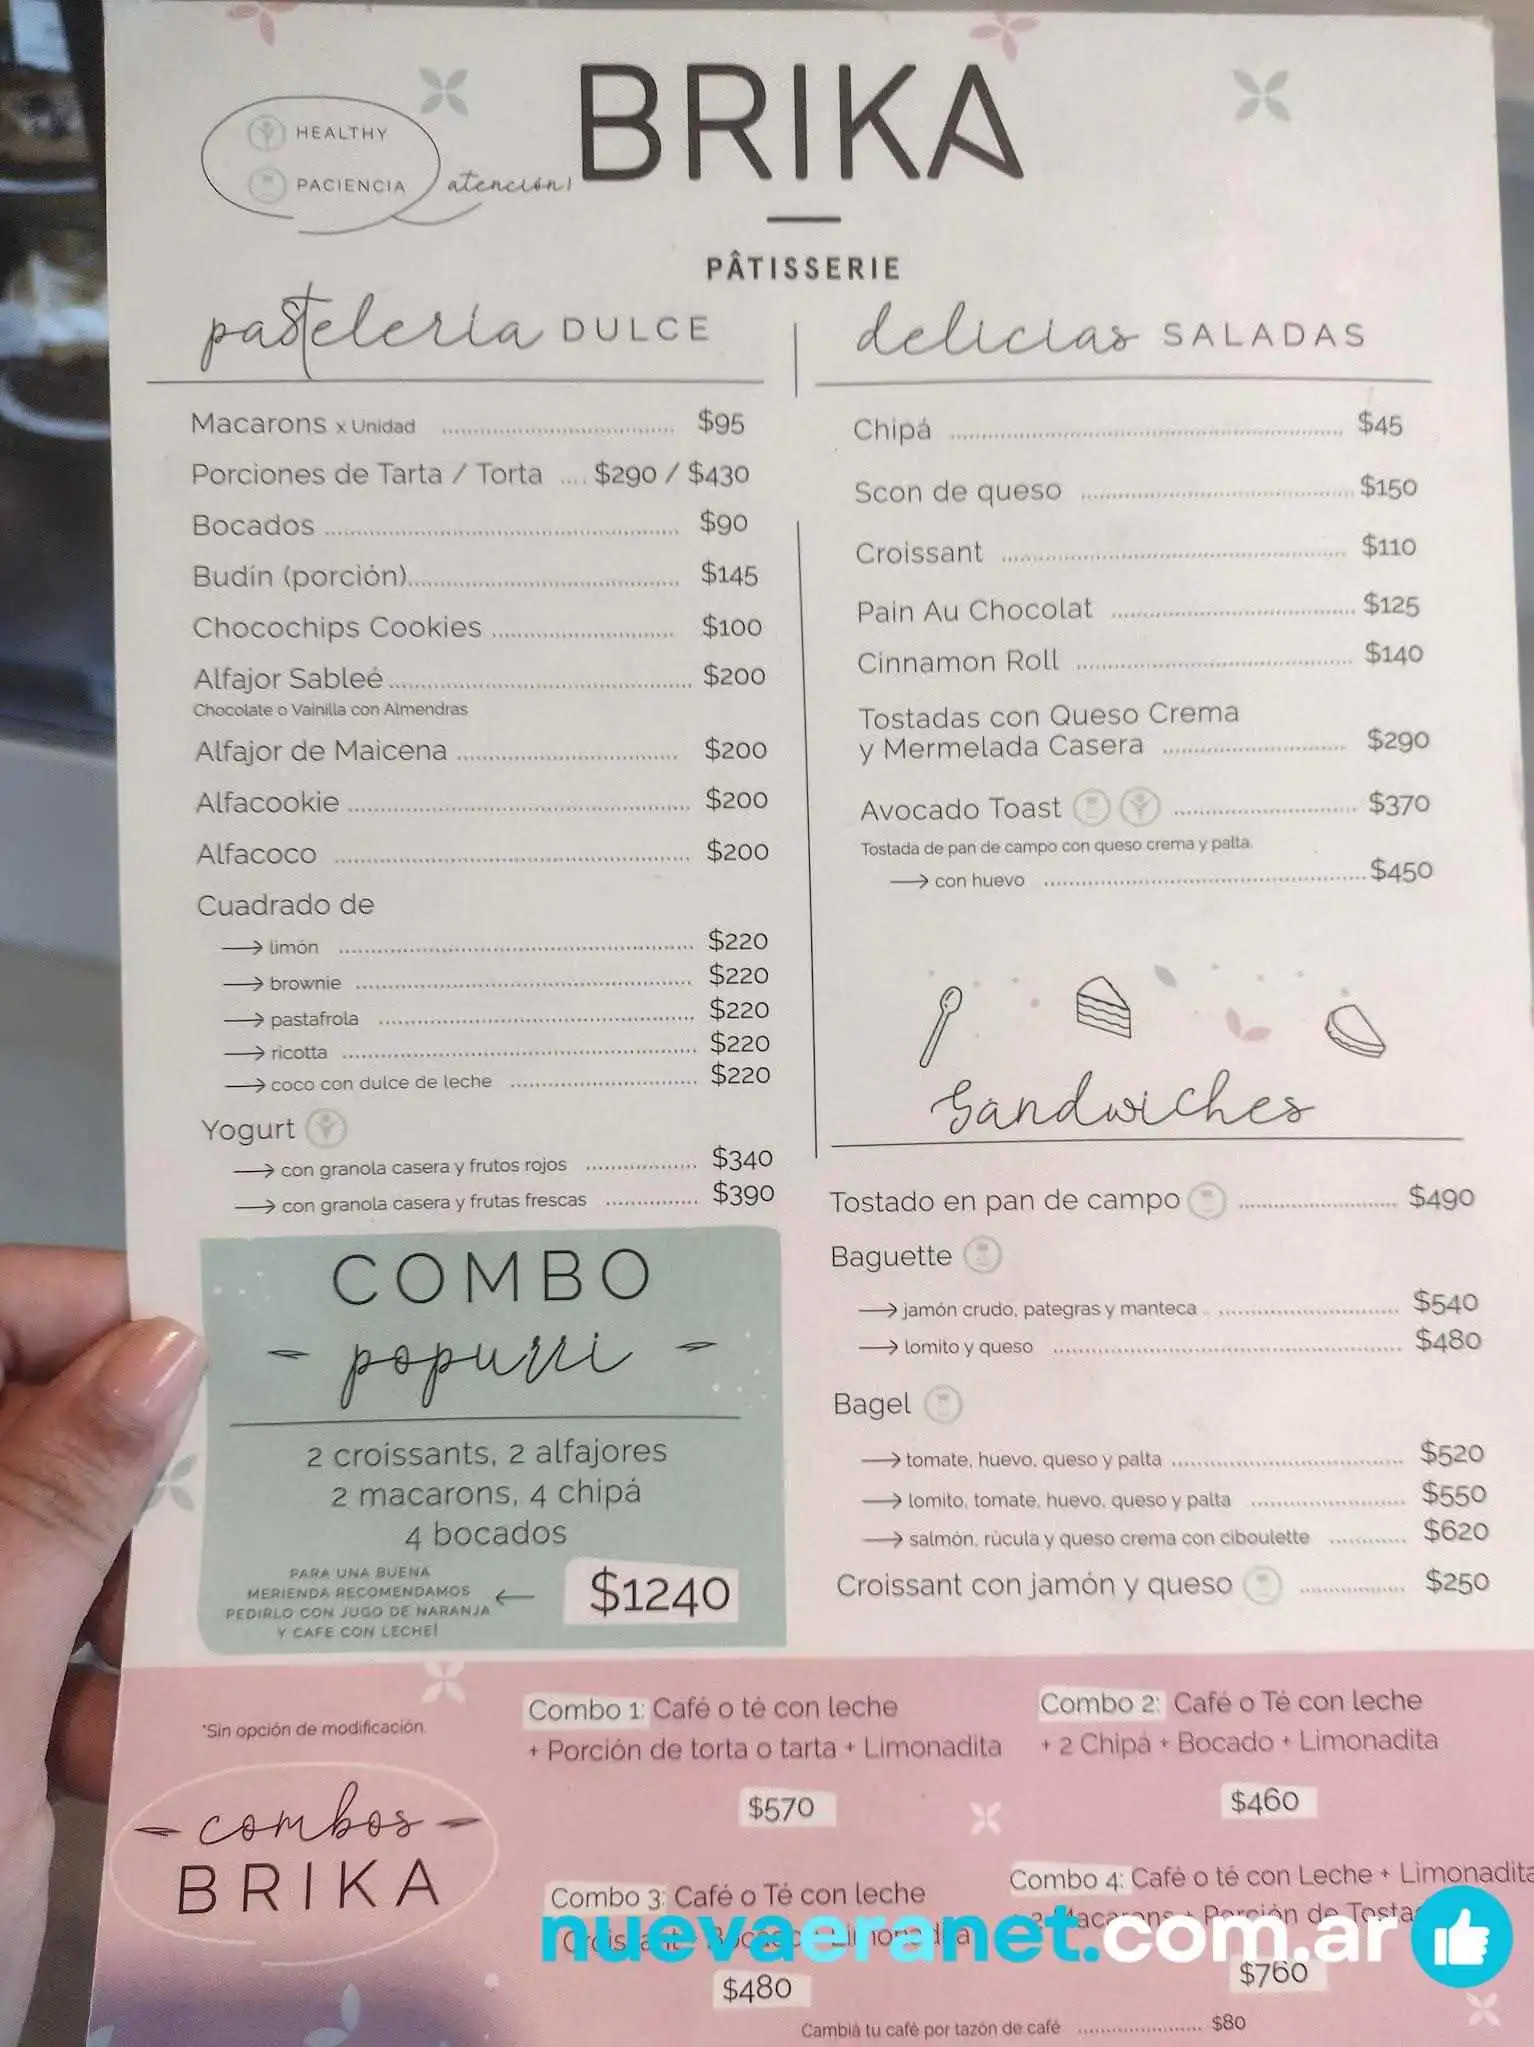 HEALTHY
PACIENCIA
atención!
BRIKA
PÂTISSERIE
pastelería DULCE
Macarons x Unidad ........ $95
Porciones de Tarta / Torta .... $290 / $430
Bocados ........ $90
Budín (porción)........ $145
Chocochips Cookies ........ $100
Alfajor Sableé ........ $200
Chocolate o Vainilla con Almendras
Alfajor de Maicena ........ $200
Alfacookie ........ $200
Alfacoco ........ $200
Cuadrado de
→ limón ........ $220
→ brownie ........ $220
→ pastafrola ........ $220
→ ricotta ........ $220
→ coco con dulce de leche ........ $220
Yogurt
→ con granola casera y frutos rojos ........ $340
→ con granola casera y frutas frescas ........ $390
delicias SALADAS
Chipá ........ $45
Scon de queso ........ $150
Croissant ........ $110
Pain Au Chocolat ........ $125
Cinnamon Roll ........ $140
Tostadas con Queso Crema
y Mermelada Casera ........ $290
Avocado Toast ........ $370
Tostada de pan de campo con queso crema y palta.
→ con huevo ........ $450
Sandwiches
Tostado en pan de campo ........ $490
Baguette
→ jamón crudo, pategras y manteca ........ $540
→ lomito y queso ........ $480
Bagel
→ tomate, huevo, queso y palta ........ $520
→ lomito, tomate, huevo, queso y palta ........ $550
→ salmón, rúcula y queso crema con ciboulette ........ $620
Croissant con jamón y queso ........ $250
COMBO
- popurri -
2 croissants, 2 alfajores
2 macarons, 4 chipá
4 bocados
PARA UNA BUENA
MERIENDA RECOMENDAMOS
PEDIRLO CON JUGO DE NARANJA
Y CAFE CON LECHE!
← $1240
*Sin opción de modificación.
- combos -
BRIKA
Combo 1: Café o té con leche
+ Porción de torta o tarta + Limonadita
$570
Combo 2: Café o Té con leche
+ 2 Chipá + Bocado + Limonadita
$460
Combo 3: Café o Té con leche
Croissant + Bocado + Limonadita
$480
Combo 4: Café o té con Leche + Limonadita
+ 2 Macarons + Porción de Tosta
$760
Cambiá tu café por tazón de café ........ $80
nuevaeranet.com.ar